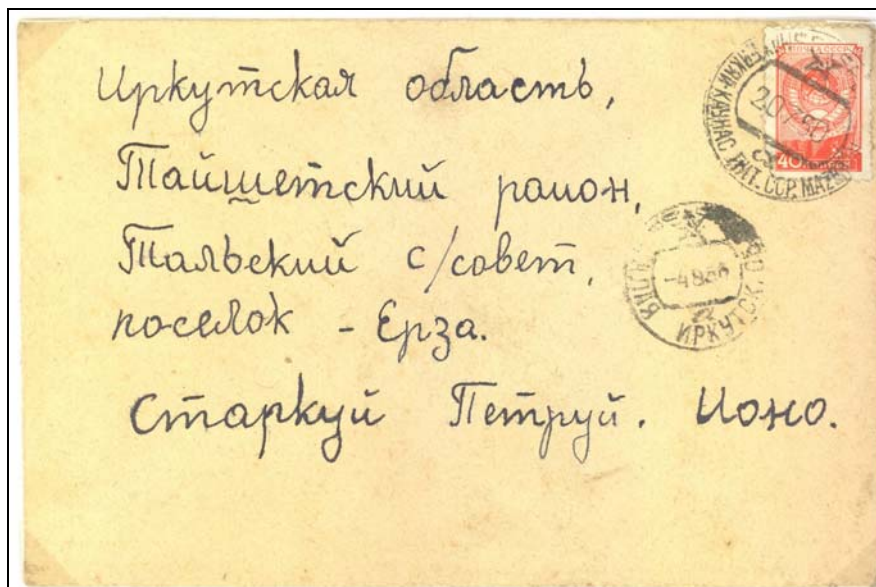 Иркутская область,
Тайшетский район,
Тальский с/совет,
поселок - Ерза.
Старкуй Петруй. Ионо.
ПОЧТА СССР
40
КАУНАС ЛИТ. ССР
ИРКУТСК. ОБ